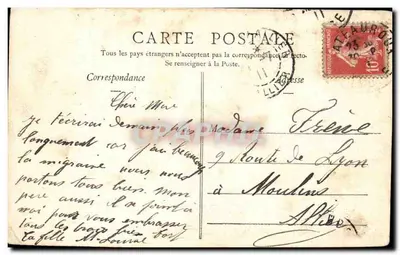 CARTE POSTALE
Tous les pays étrangers n'acceptent pas la correspondance au recto
Se renseigner à la Poste.
Correspondance
Adresse
Chère Mère
je t'écrirai demain plus
longuement car j'ai beaucoup
la migraine nous nous
portons tous bien. Mon
père aussi il se joint à
moi pour vous embrasser
tous les trois bien fort
ta fille
Madame Frène
9 Route de Lyon
à Moulins
Allier
10